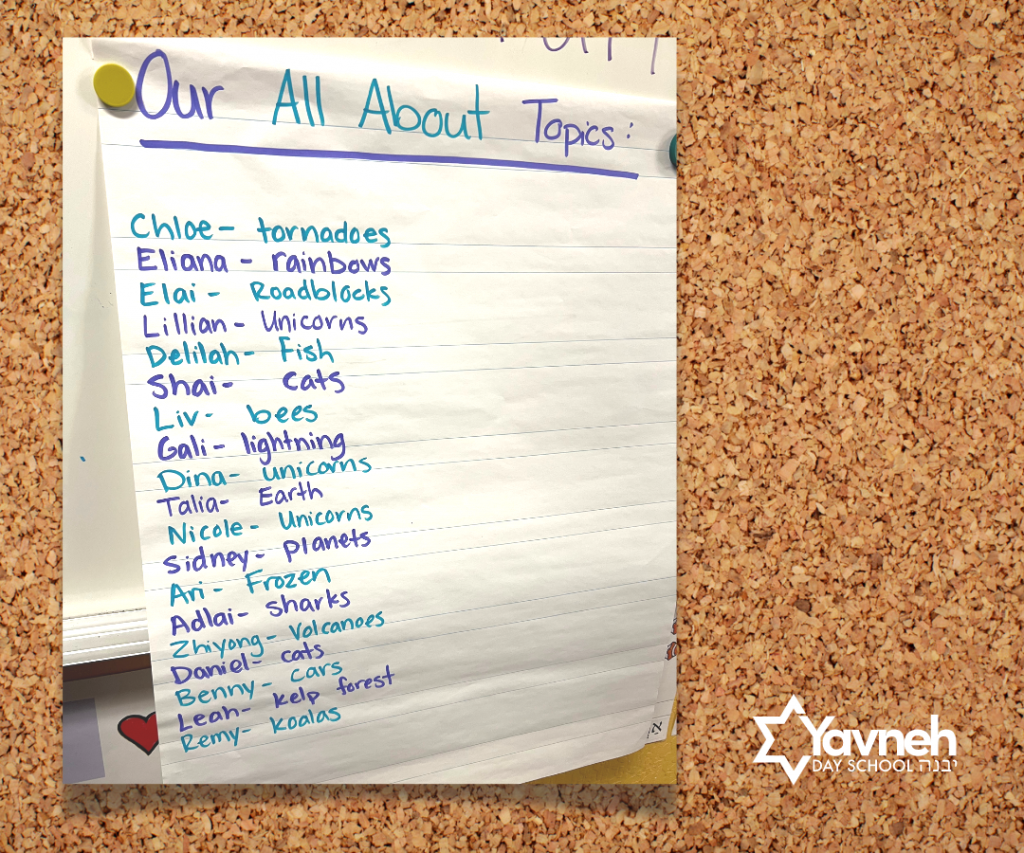 Our All About Topics:
Chloe- tornadoes
Eliana - rainbows
Elai - Roadblocks
Lillian- Unicorns
Delilah- Fish
Shai- cats
Liv- bees
Gali- lightning
Dina- unicorns
Talia- Earth
Nicole- Unicorns
Sidney- planets
Ari- Frozen
Adlai- sharks
Zhiyong- Volcanoes
Daniel- cats
Benny- cars
Leah- kelp forest
Remy- koalas
א
Yavneh
DAY SCHOOL יבנה